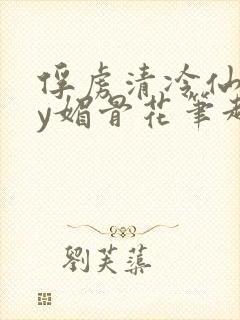 俘虏清冷仙
y媚骨花笔趣
劉芙蕖